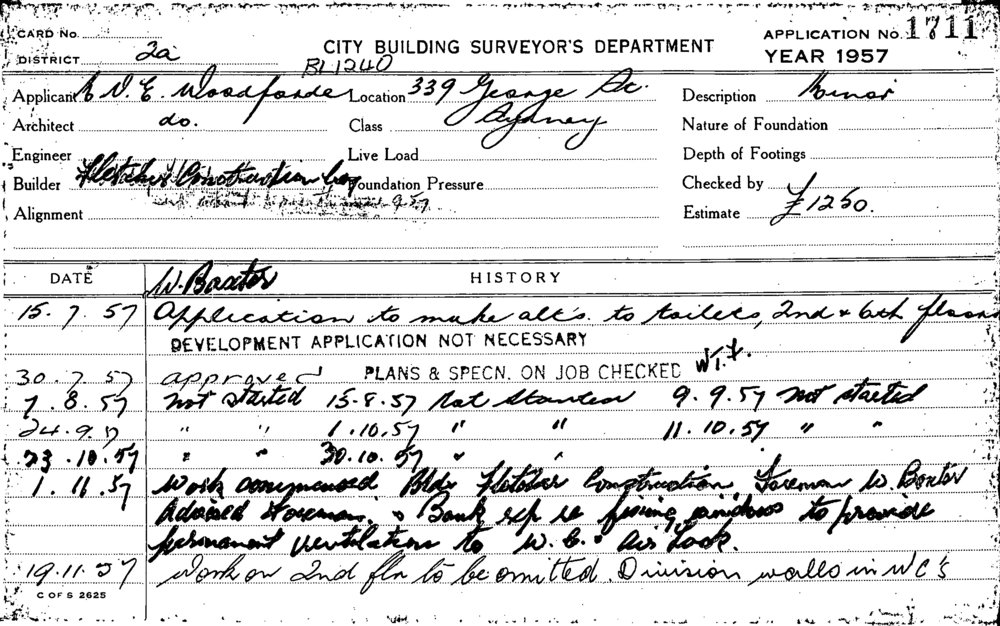 CARD No.
DISTRICT 2a
CITY BUILDING SURVEYOR'S DEPARTMENT
BL1240
APPLICATION No. 1711
YEAR 1957
Applicant E V. E. Woodforde Location 339 George St. Sydney Description Minor
Architect do. Class Nature of Foundation
Engineer Live Load Depth of Footings
Builder Fletcher Construction Coy Foundation Pressure Checked by
Alignment Estimate £1250.
DATE W. Baxter HISTORY
15. 7. 57 Application to make alt's. to toilets, 2nd & 6th floors
DEVELOPMENT APPLICATION NOT NECESSARY
30. 7. 57 approved PLANS & SPECN. ON JOB CHECKED
7. 8. 57 Not started 15-8.57 Not Started 9. 9. 57 Not started
24. 9. 57 " " 1.10.57 " " 11. 10. 57 " "
23. 10. 57 " " 30.10. 57 " "
1. 11. 57 Work commenced Bldr Fletcher Construction, Foreman W. Baxter
Advised Foreman & Bank rep re fixing windows to provide
permanent ventilation to W.C. & Air Lock.
19.11.57 Work on 2nd flr to be omitted. Division walls in WC's
C OF S 2625